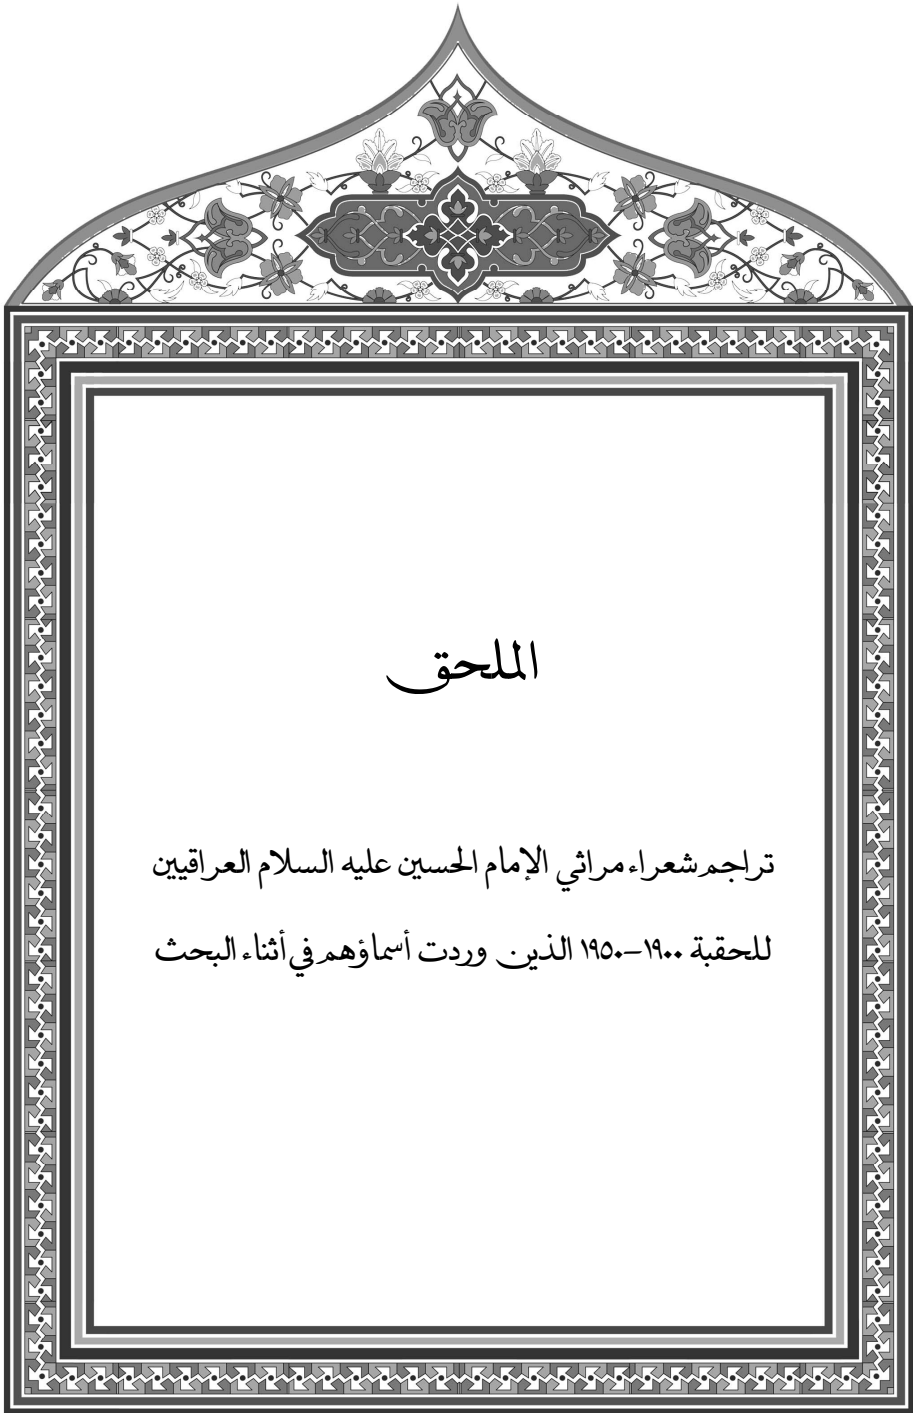 الملحق
تراجم شعراء مراثي الإمام الحسين عليه السلام العراقيين
للحقبة ١٩٠٠-١٩٥٠ الذين وردت أسماؤهم في أثناء البحث